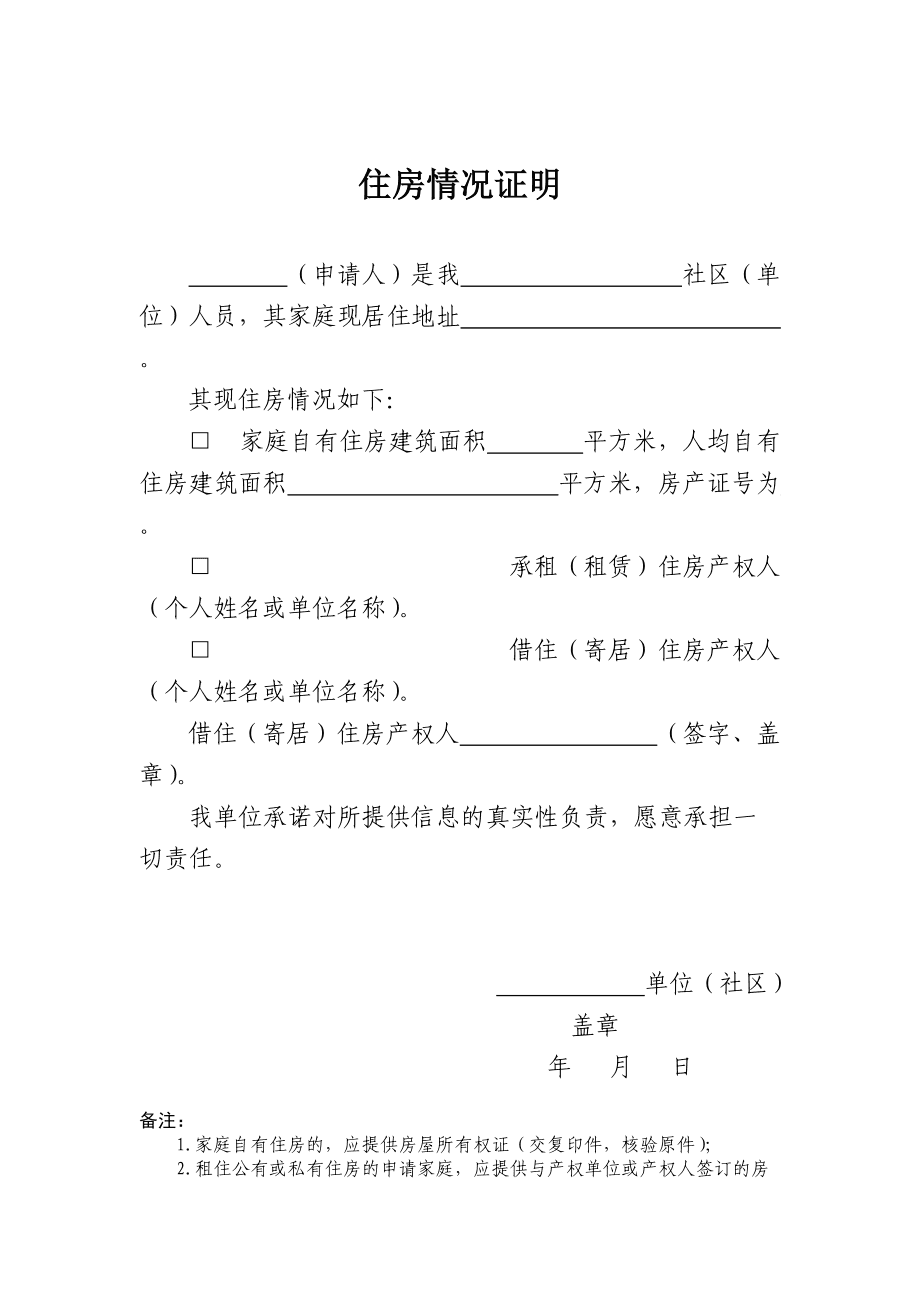 住房情况证明
________（申请人）是我__________________社区（单
位）人员，其家庭现居住地址__________________________
。
其现住房情况如下：
□ 家庭自有住房建筑面积________平方米，人均自有
住房建筑面积______________________平方米，房产证号为
。
□ 承租（租赁）住房产权人
（个人姓名或单位名称）。
□ 借住（寄居）住房产权人
（个人姓名或单位名称）。
借住（寄居）住房产权人________________（签字、盖
章）。
我单位承诺对所提供信息的真实性负责，愿意承担一
切责任。
____________单位（社区）
盖章
年 月 日
备注：
1.家庭自有住房的，应提供房屋所有权证（交复印件，核验原件）；
2.租住公有或私有住房的申请家庭，应提供与产权单位或产权人签订的房